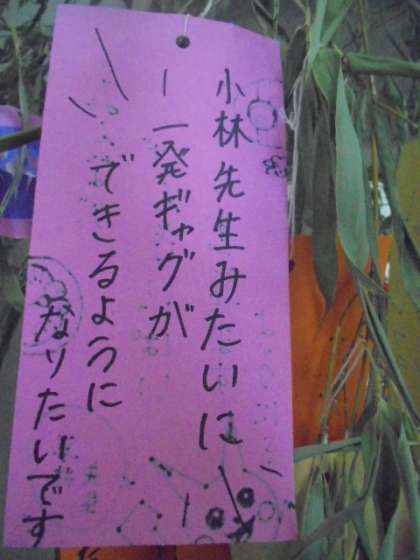 小林先生みたいに
一発ギャグが
できるように
なりたいです